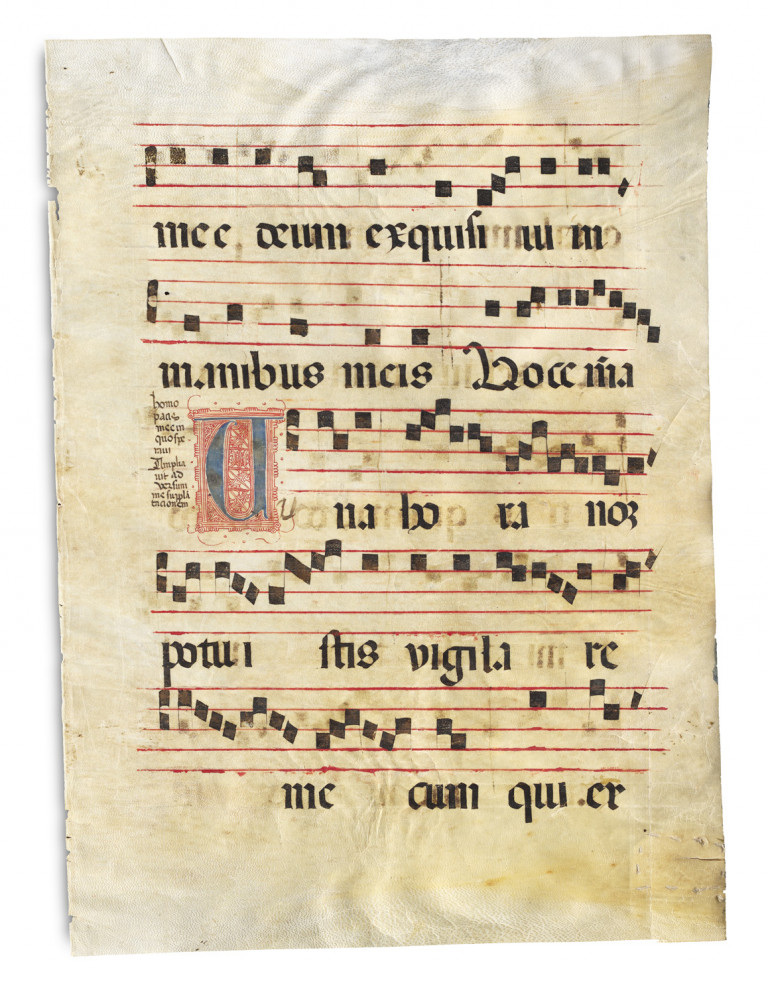 mee deum exquisi ui m
manibus meis Voce m̄a
homo
pacis
mee in
quo spe
Amplia
uit ad
uersum
me suppla
tacionem
Un na ho ra non
potui stis vigila re
me cum qui ex